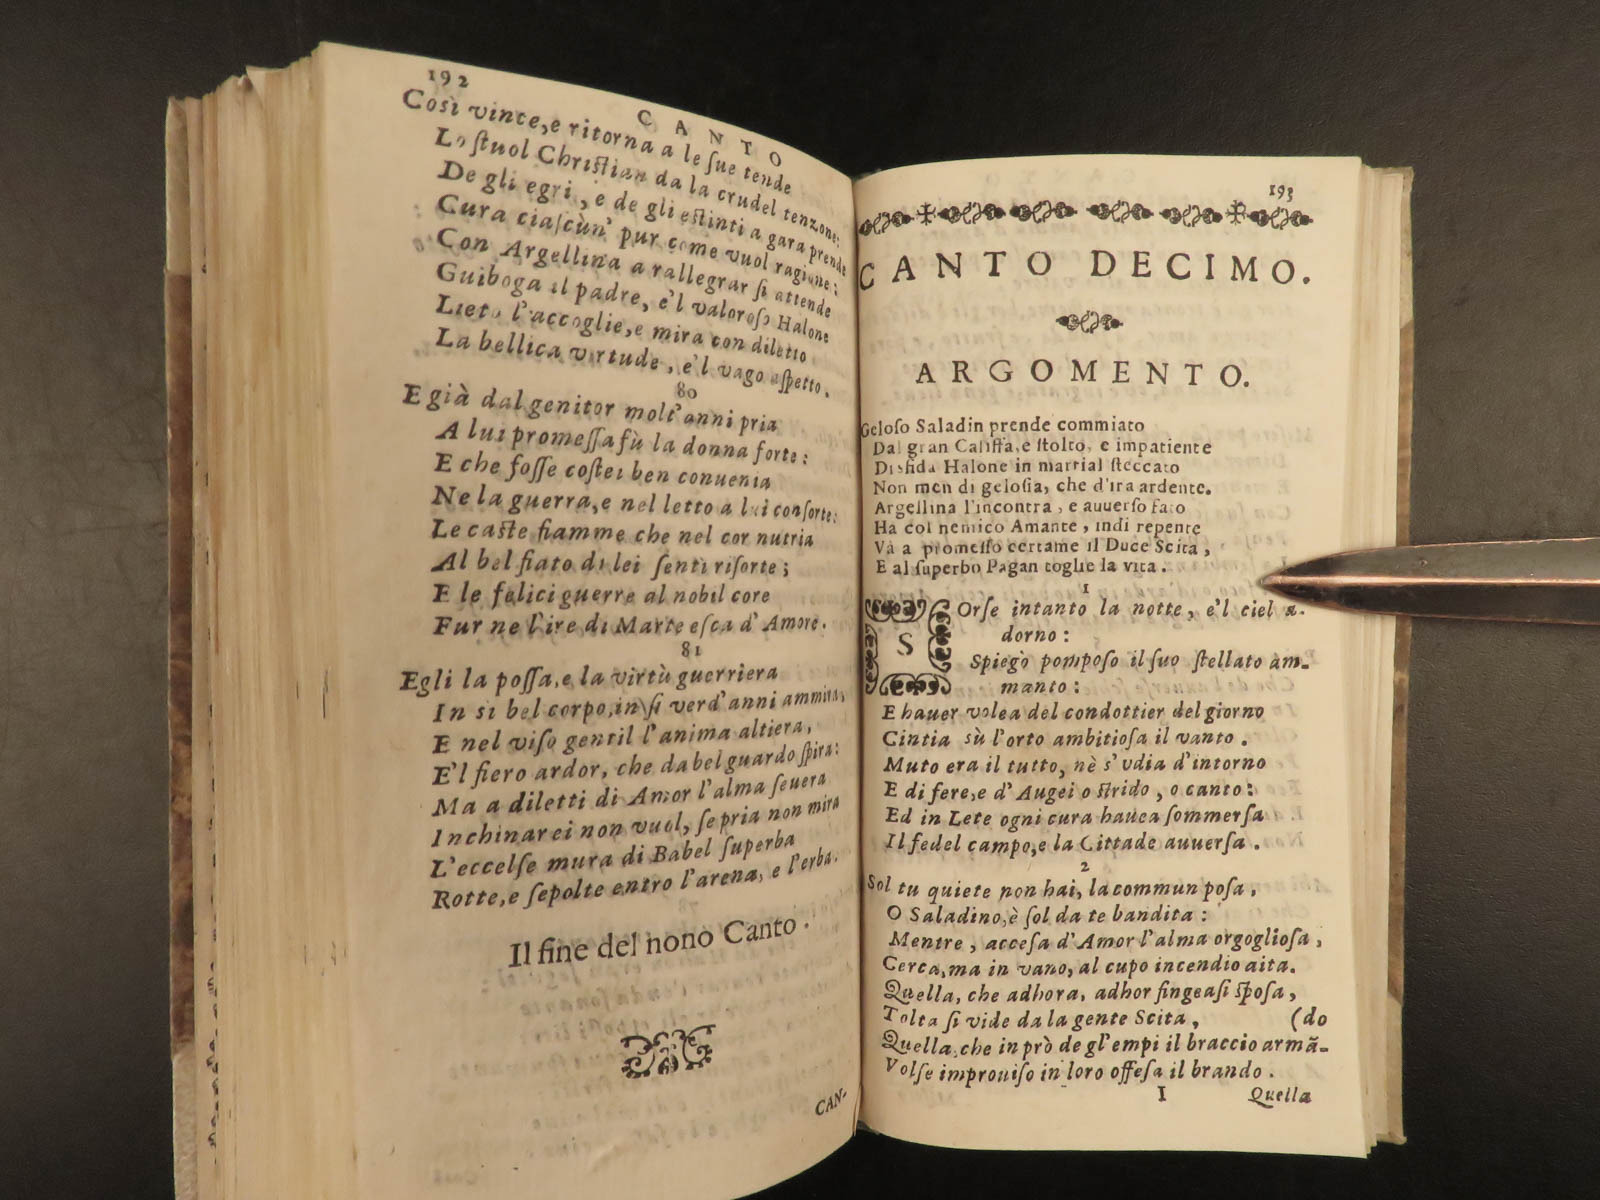 192
CANTO
Così vince, e ritorna a le ſue tende
Lo ſtuol Chriſtian da la crudel tenzone:
De gli egri, e de gli eſtinti a gara prende
Cura ciaſcun' pur come vuol ragione:
Con Argellina a rallegrar ſi attende
Guiboga il padre, e'l valoroſo Halone
Lieto l'accoglie, e mira con diletto
La bellica virtude, e'l vago aſpetto.
80
E già dal genitor molt'anni pria
A lui promeſſa fù la donna forte:
E che foſſe coſtei ben conuenia
Ne la guerra, e nel letto a lui conſorte:
Le caſte fiamme che nel cor nutria
Al bel fiato di lei ſenti riſorte;
E le felici guerre al nobil core
Fur ne l'ire di Marte eſca d'Amore.
81
Egli la poſſa, e la virtù guerriera
In sì bel corpo, in ſi verd'anni ammira,
E nel viſo gentil l'anima altiera,
E'l fiero ardor, che da bel guardo ſpira:
Ma a diletti di Amor l'alma ſeuera
Inchinar ei non vuol, ſe pria non mira
L'eccelſe mura di Babel ſuperba
Rotte, e ſepolte entro l'arena, e l'erba.
Il fine del nono Canto.
CAN-
193
CANTO DECIMO.
ARGOMENTO.
Geloſo Saladin prende commiato
Dal gran Califfa, e ſtolto, e impatiente
Disfida Halone in martial ſteccato
Non men di geloſia, che d'ira ardente.
Argellina l'incontra, e auuerſo fato
Ha col nemico Amante, indi repente
Và a promeſſo certame il Duce Scita,
E al ſuperbo Pagan toglie la vita.
1
SOrſe intanto la notte, e'l ciel a-
dorno:
Spiegò pompoſo il ſuo ſtellato am-
manto:
E hauer volea del condottier del giorno
Cintia sù l'orto ambitioſa il vanto.
Muto era il tutto, nè s'vdia d'intorno
E di fere, e d'Augei o ſtrido, o canto:
Ed in Lete ogni cura hauea ſommerſa
Il fedel campo, e la Cittade auuerſa.
2
Sol tu quiete non hai, la commun poſa,
O Saladino, è ſol da te bandita:
Mentre, acceſa d'Amor l'alma orgoglioſa,
Cerca, ma in vano, al cupo incendio aita.
Quella, che adhora, adhor fingeaſi ſpoſa,
Tolta ſi vide da la gente Scita, (do
Quella, che in prò de gl'empi il braccio armã-
Volſe improuiſo in loro offeſa il brando.
I
Quella